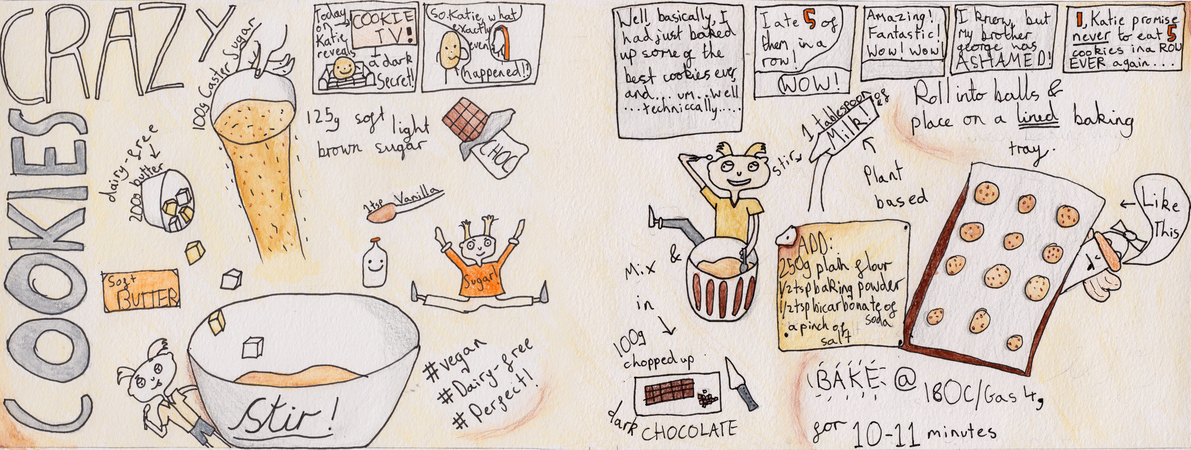 CRAZY
COOKIES
Today
on
Katie
reveals
COOKIE
TV!
a dark
Secret!
So Katie, what
exactly
even
happened!?
Well basically, I
had just baked
up some of the
best cookies ever
and... um.. well
...technically....
I ate 5 of
them, in a
row!
WOW!
Amazing!
Fantastic!
Wow! Wow!
I know, but
My brother
george was
ASHAMED!
I, Katie promise
never to eat 5
cookies in a ROW
EVER again....
100g Caster Sugar
125g soft light
brown sugar
CHOC
dairy-free
200g butter
1tsp Vanilla
Soft
BUTTER
Sugar!
Stir!
#vegan
#Dairy-free
#Perfect!
stir
1 tablespoon of
Milk!
Plant
based
Mix &
in
100g
chopped up
dark CHOCOLATE
ADD:
250g plain flour
1/2tsp baking powder
1/2tsp bicarbonate of
soda
a pinch of
salt
Roll into balls &
place on a lined baking
tray.
Like
This
BAKE @ 180C/Gas 4,
for 10-11 minutes